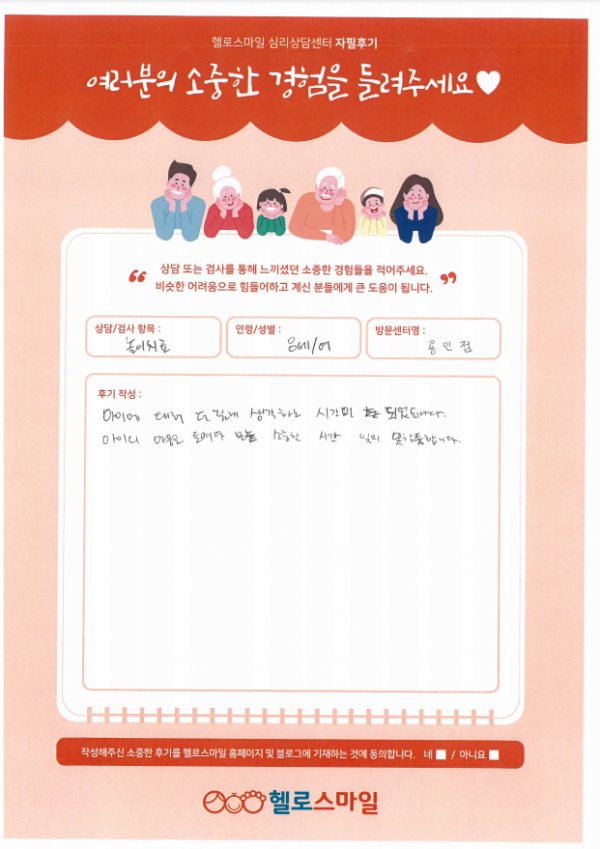 헬로스마일 심리상담센터 자필후기
여러분의 소중한 경험을 들려주세요
❝ 상담 또는 검사를 통해 느끼셨던 소중한 경험들을 적어주세요.
비슷한 어려움으로 힘들어하고 계신 분들에게 큰 도움이 됩니다. ❞
상담/검사 항목 : 놀이치료
연령/성별 : 세/여
방문센터명 : 용인점
후기 작성 :
아이에 대해 더 깊게 생각하는 시간이 되었습니다.
아이의 마음을 소중한 시간 잊지 못할듯합니다.
작성해주신 소중한 후기를 헬로스마일 홈페이지 및 블로그에 기재하는 것에 동의합니다. 네 / 아니요
헬로스마일